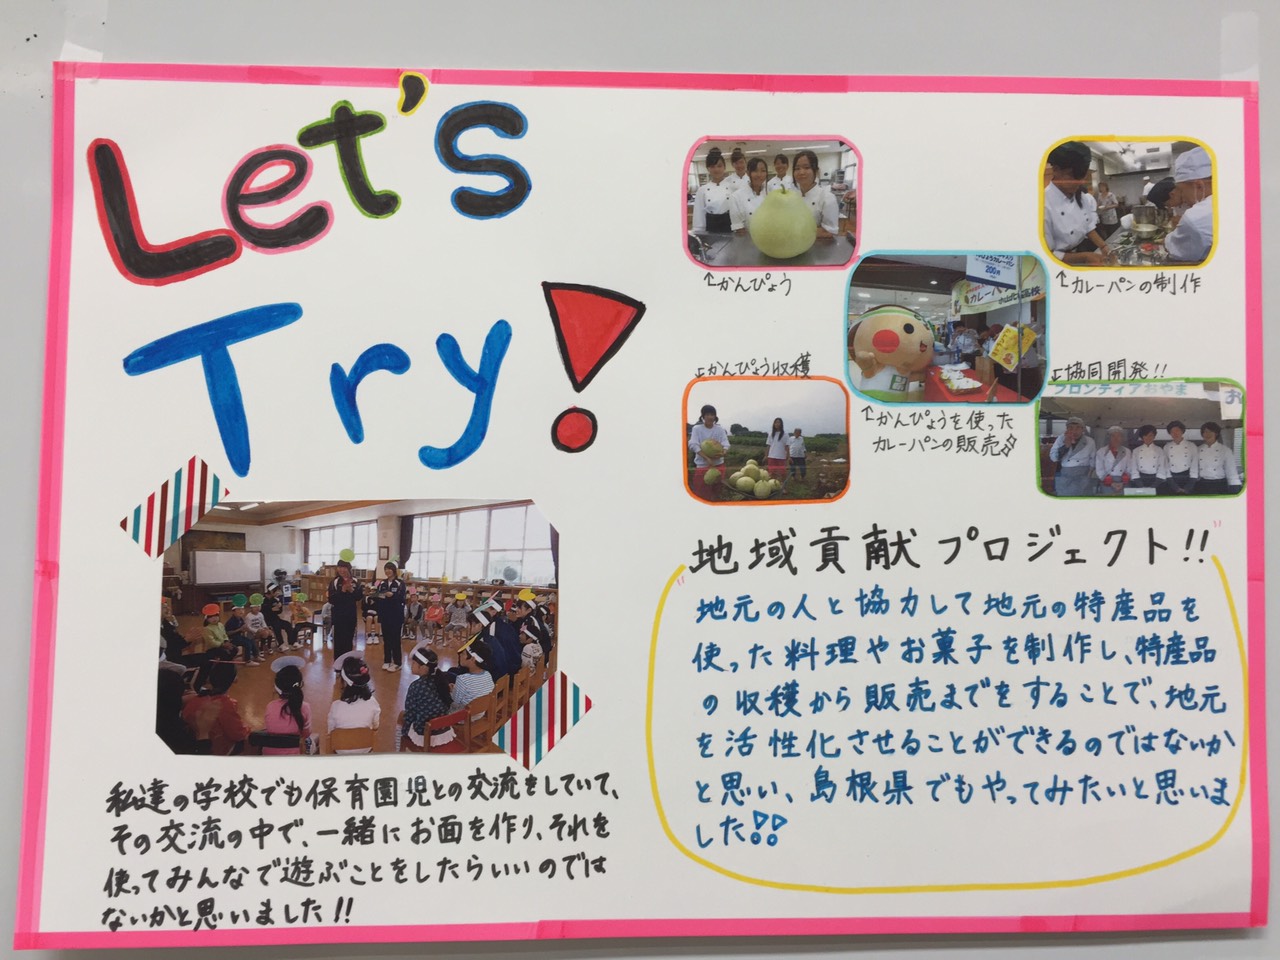 Let's
Try!
私達の学校でも保育園児との交流をしていて、
その交流の中で、一緒にお面を作り、それを
使ってみんなで遊ぶことをしたらいいのでは
ないかと思いました!!
↑かんぴょう
↑カレーパンの制作
200円
カレーパン
↓かんぴょう収穫
↑かんぴょうを使った
カレーパンの販売!!
↓協同開発!!
フロンティアおやま
お
"地域貢献プロジェクト!!"
地元の人と協力して地元の特産品を
使った料理やお菓子を制作し、特産品
の収穫から販売までをすることで、地元
を活性化させることができるのではないか
と思い、島根県でもやってみたいと思いま
した!!